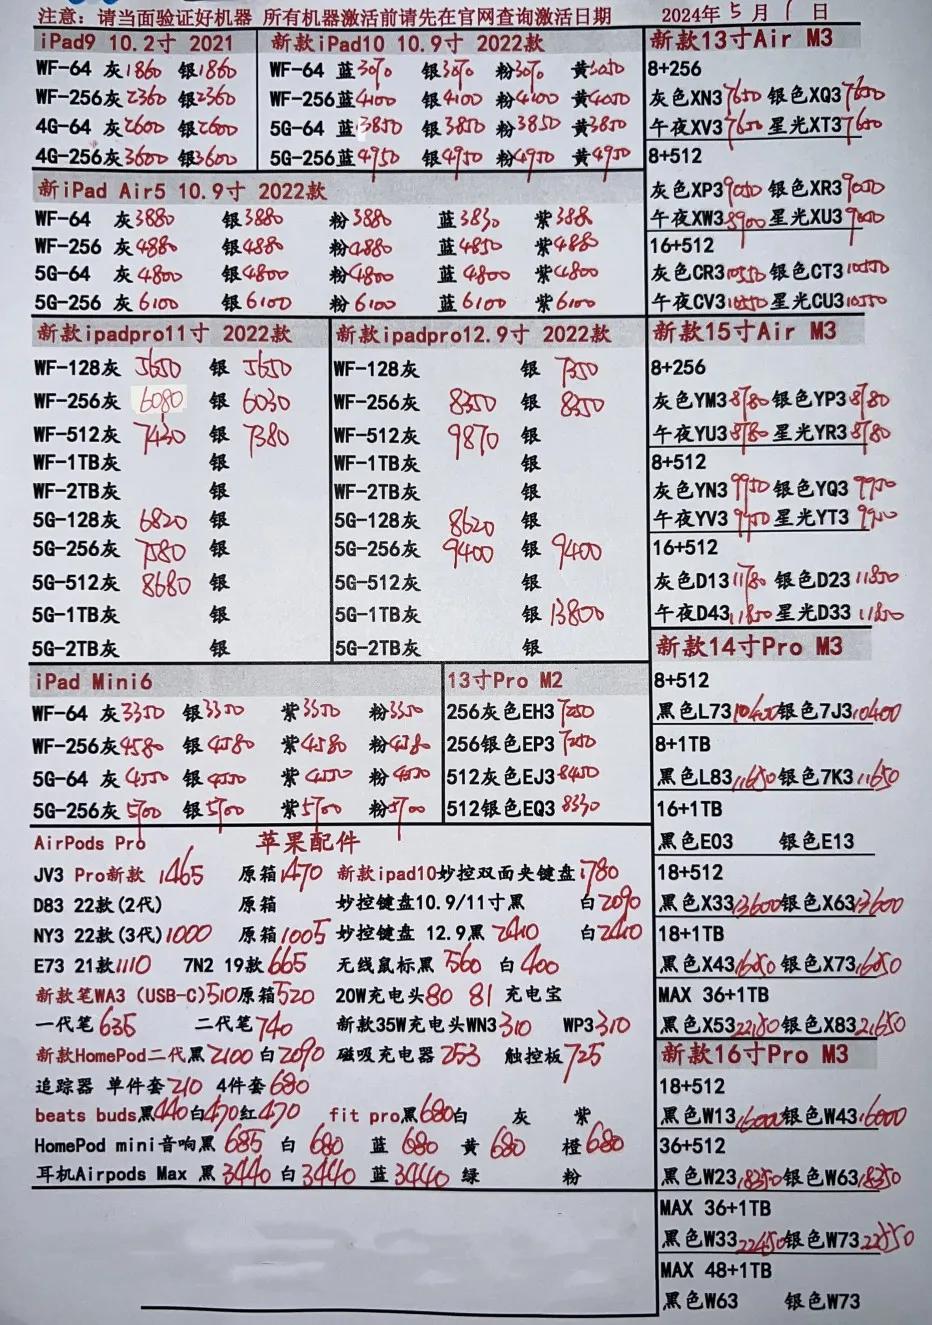 注意：请当面验证好机器 所有机器激活前请先在官网查询激活日期 2024年5月1日
iPad9 10.2寸 2021
WF-64 灰1860 银1860
WF-256灰2360 银2360
4G-64 灰2600 银2600
4G-256灰3600 银3600
新款iPad10 10.9寸 2022款
WF-64 蓝3070 银3070 粉3070 黄3050
WF-256蓝4100 银4100 粉4100 黄4050
5G-64 蓝3850 银3850 粉3850 黄3850
5G-256蓝4950 银4950 粉4950 黄4950
新iPad Air5 10.9寸 2022款
WF-64 灰3880 银3880 粉3880 蓝3830 紫388
WF-256 灰4880 银4880 粉4880 蓝4850 紫4880
5G-64 灰4800 银4800 粉4800 蓝4800 紫4800
5G-256 灰6100 银6100 粉6100 蓝6100 紫6100
新款ipadpro11寸 2022款
WF-128灰 5650 银 5650
WF-256灰 6080 银 6030
WF-512灰 7430 银 7380
WF-1TB灰 银
WF-2TB灰 银
5G-128灰 6820 银
5G-256灰 7580 银
5G-512灰 8680 银
5G-1TB灰 银
5G-2TB灰 银
新款ipadpro12.9寸 2022款
WF-128灰 银 7350
WF-256灰 8350 银 8350
WF-512灰 9870 银
WF-1TB灰 银
WF-2TB灰 银
5G-128灰 8620 银
5G-256灰 9400 银 9400
5G-512灰 银
5G-1TB灰 银 13800
5G-2TB灰 银
iPad Mini6
WF-64 灰3350 银3350 紫3350 粉3350
WF-256灰4580 银4580 紫4580 粉4580
5G-64 灰4550 银4550 紫4550 粉4550
5G-256灰5700 银5700 紫5700 粉5700
13寸Pro M2
256灰色EH3 7250
256银色EP3 7250
512灰色EJ3 8450
512银色EQ3 8330
AirPods Pro 苹果配件
JV3 Pro新款 1465 原箱1470 新款ipad10妙控双面夹键盘1780
D83 22款(2代) 原箱 妙控键盘10.9/11寸黑 白2090
NY3 22款(3代)1000 原箱1005 妙控键盘 12.9黑 2410 白2410
E73 21款1110 7N2 19款665 无线鼠标黑 560 白 400
新款笔WA3 (USB-C)510原箱520 20W充电头80 81 充电宝
一代笔635 二代笔740 新款35W充电头WN3310 WP3310
新款HomePod二代黑2100 白2090 磁吸充电器 253 触控板725
追踪器 单件套210 4件套680
beats buds黑440白470红470 fit pro黑680白 灰 紫
HomePod mini音响黑 685 白 680 蓝 680 黄 680 橙680
耳机Airpods Max 黑 3440 白 3440 蓝 3440 绿 粉
新款13寸Air M3
8+256
灰色XN37650 银色XQ37650
午夜XV37650 星光XT37650
8+512
灰色XP39050 银色XR39050
午夜XW38900 星光XU39050
16+512
灰色CR310550 银色CT310550
午夜CV310550 星光CU310550
新款15寸Air M3
8+256
灰色YM38780 银色YP38780
午夜YU38780 星光YR38780
8+512
灰色YN39950 银色YQ3 9950
午夜YV39950 星光YT3 9900
16+512
灰色D131180 银色D23 11850
午夜D4311850 星光D33 11850
新款14寸Pro M3
8+512
黑色L7310400银色7J310400
8+1TB
黑色L8311650银色7K311650
16+1TB
黑色E03 银色E13
18+512
黑色X3313600银色X6313600
18+1TB
黑色X431650银色X731650
MAX 36+1TB
黑色X5322150银色X8321650
新款16寸Pro M3
18+512
黑色W1316000银色W4316000
36+512
黑色W2318350银色W6318350
MAX 36+1TB
黑色W3322450银色W7322550
MAX 48+1TB
黑色W63 银色W73